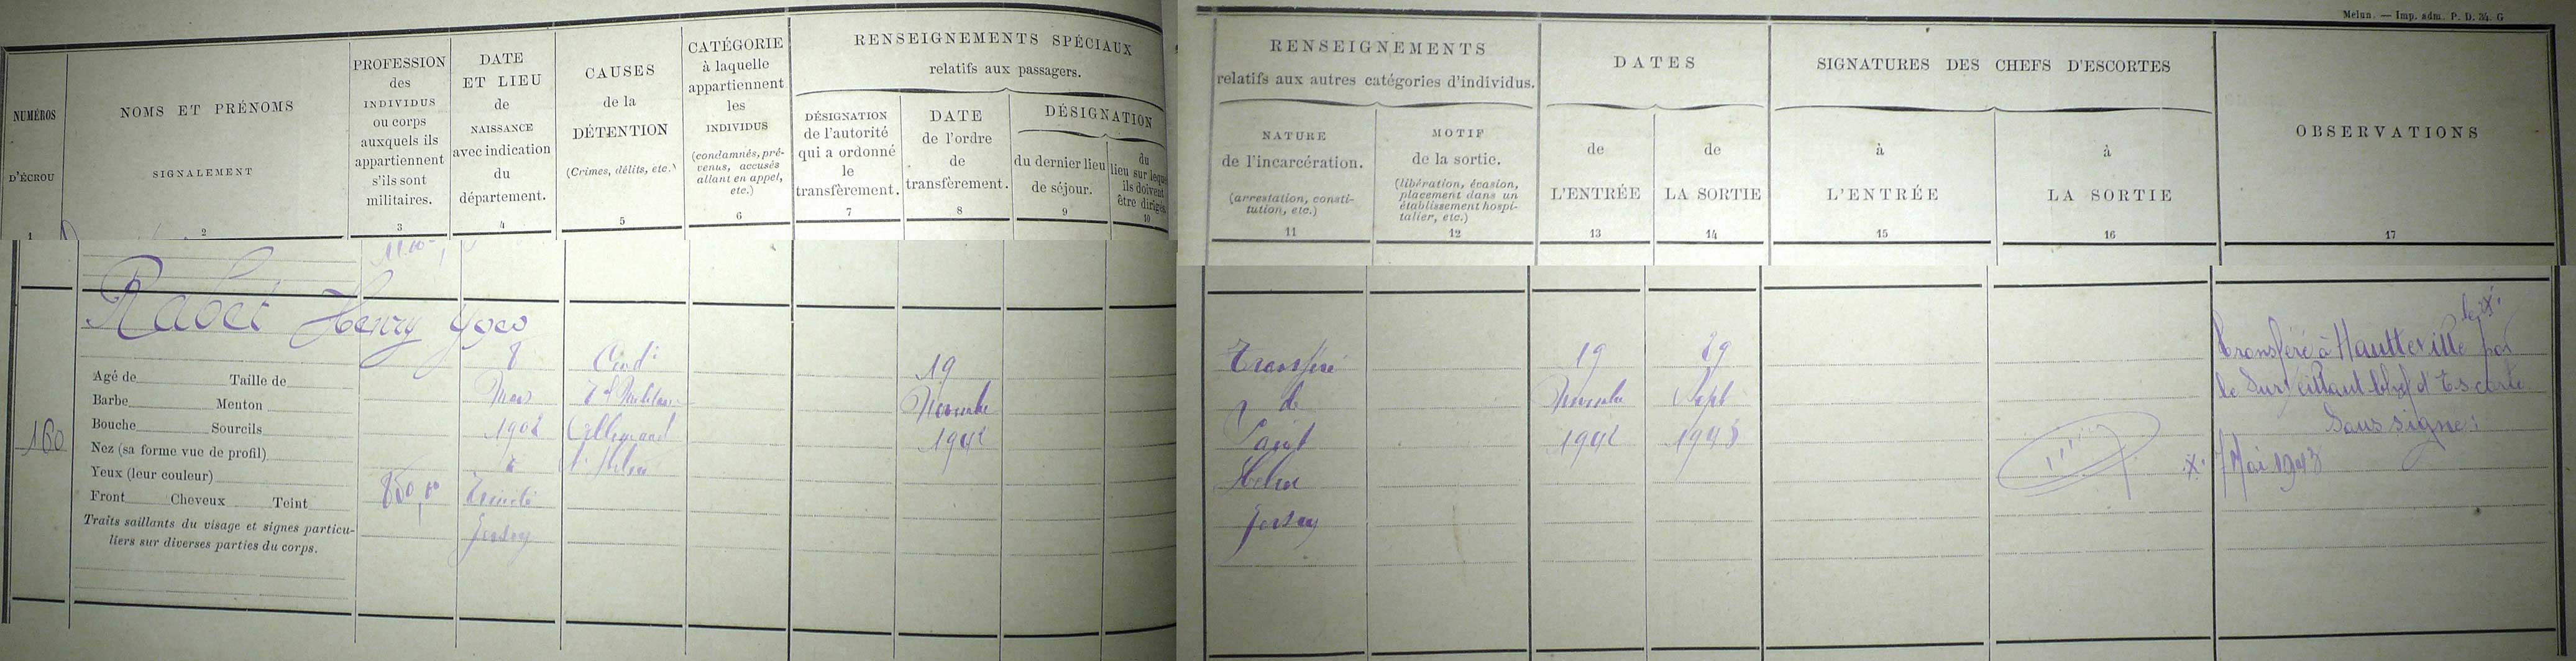 Melun. — Imp. adm. P. D. 34. G
NUMÉROS
D'ÉCROU
1
NOMS ET PRÉNOMS
SIGNALEMENT
2
PROFESSION
des
INDIVIDUS
ou corps
auxquels ils
appartiennent
s'ils sont
militaires.
3
DATE
ET LIEU
de
NAISSANCE
avec indication
du
département.
4
CAUSES
de la
DÉTENTION
(Crimes, délits, etc.)
5
CATÉGORIE
à laquelle
appartiennent
les
INDIVIDUS
(condamnés, pré-
venus, accusés
allant en appel,
etc.)
6
RENSEIGNEMENTS SPÉCIAUX
relatifs aux passagers.
DÉSIGNATION
de l'autorité
qui a ordonné
le
transfèrement.
7
DATE
de l'ordre
de
transfèrement.
8
DÉSIGNATION
du dernier lieu
de séjour.
9
du
lieu sur leque
ils doivent
être dirigés
10
RENSEIGNEMENTS
relatifs aux autres catégories d'individus.
NATURE
de l'incarcération.
(arrestation, consti-
tution, etc.)
11
MOTIF
de la sortie.
(libération, évasion,
placement dans un
établissement hospi-
talier, etc.)
12
DATES
de
L'ENTRÉE
13
de
LA SORTIE
14
SIGNATURES DES CHEFS D'ESCORTES
à
L'ENTRÉE
15
à
LA SORTIE
16
OBSERVATIONS
17
160
Rabet Henry Yves
Agé de Taille de
Barbe Menton
Bouche Sourcils
Nez (sa forme vue de profil)
Yeux (leur couleur)
Front Cheveux Teint
Traits saillants du visage et signes particu-
liers sur diverses parties du corps.
850,00
8
Mars
190
à
Trinité
Jersey
Cond
Allemand
St Hélier
19
Novembre
1942
Transféré
de
Saint
Hélier
Jersey
19
Novembre
1942
29
Sept
1943
Transféré à Hautteville par
le Surveillant Chef d'Escorte
Sous signe:
Mai 1943